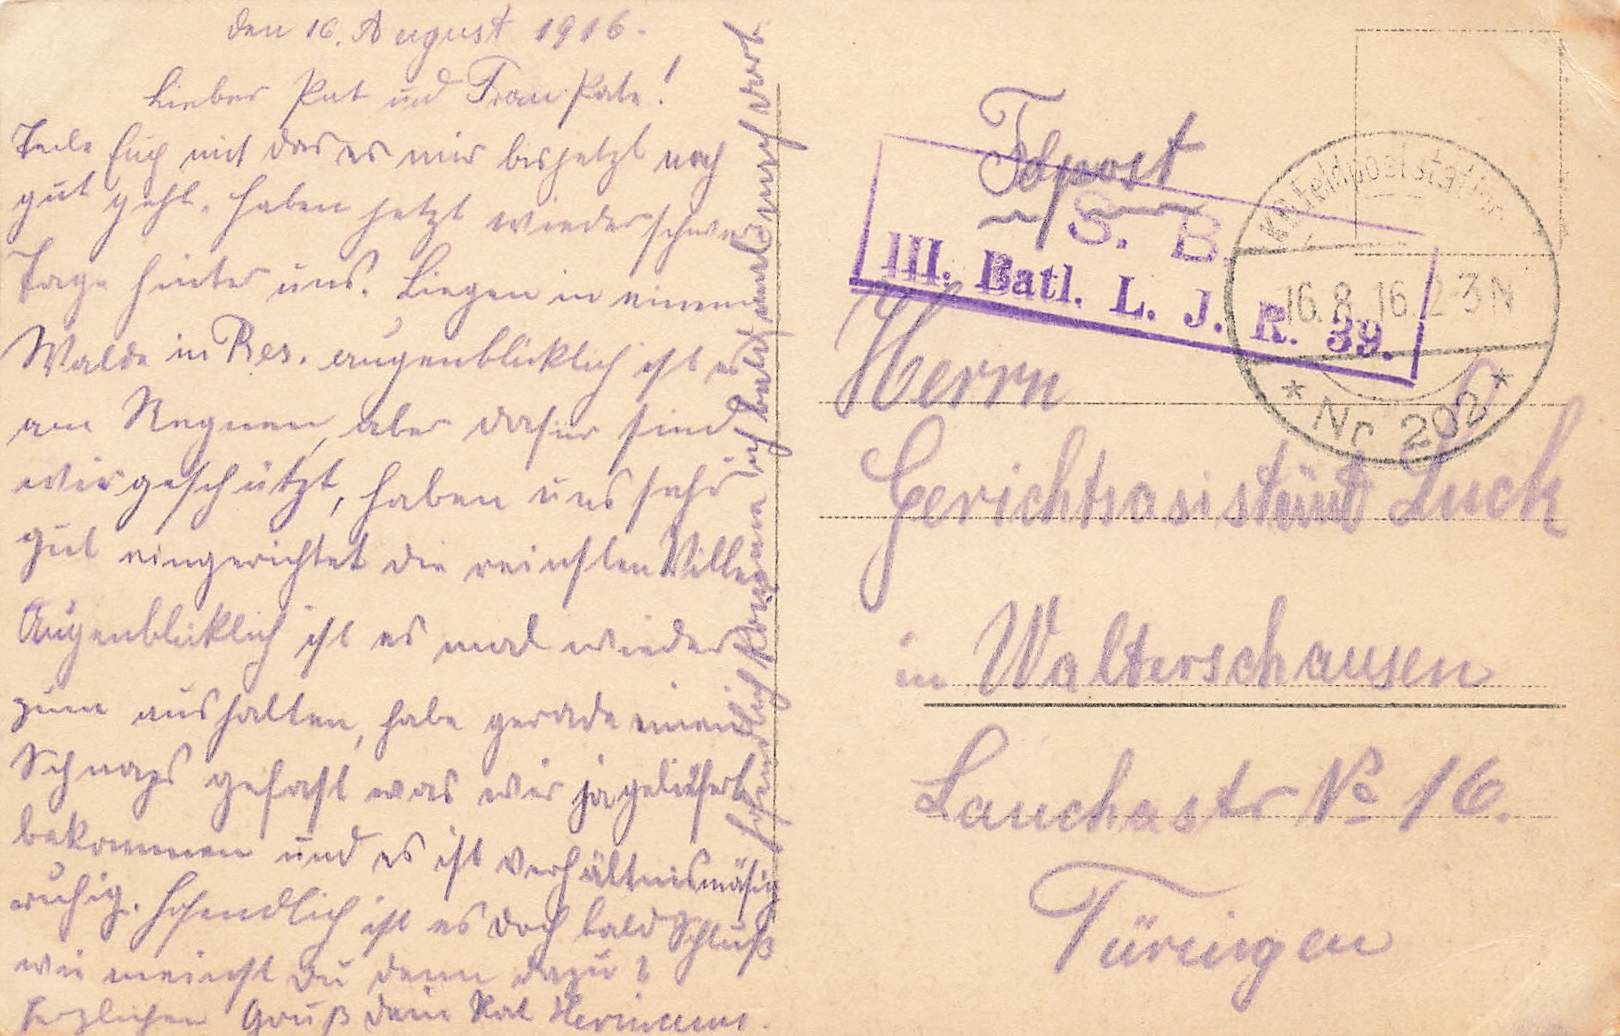 den 16. August 1916.
Lieber Pat und Frau Pate!
Teile Euch mit das es mir bisjetzt noch
gut geht. haben jetzt wieder schwere
Tage hinter uns. Liegen in einem
Walde in Res. augenblicklich ist es
am Regnen, aber dafür sind
wir geschützt, haben uns sehr
gut eingerichtet die reinsten Villen
Augenblicklich ist es mal wieder
zum aushalten, habe gerade
Schnaps gefast was wir
bekommen und es ist verhältnismäsig
ruhig. hofendlich ist es doch bald Schluß
wie meinst Du denn dazu?
Herzlichen Gruß dein Pat Hermann.
hofendlich komme ich bald mal
Fdpost
S. B.
III. Batl. L. J. R. 39.
K.D. Feldpoststation
16.8.16 2-3N
* Nr 202 *
Herrn
Gerichtsasistent Luck
in Walterschausen
Lauchastr No 16.
Türingen